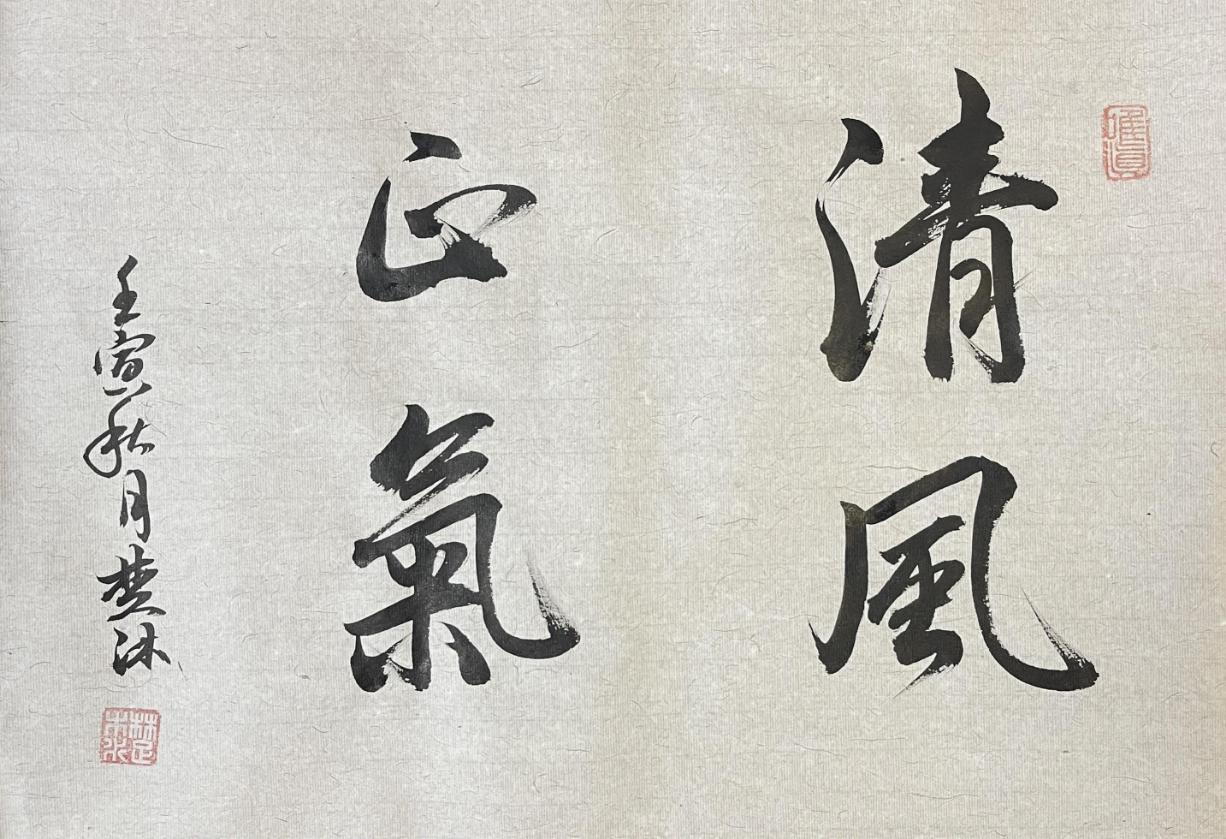 清風
正氣
壬寅秋月楚沐